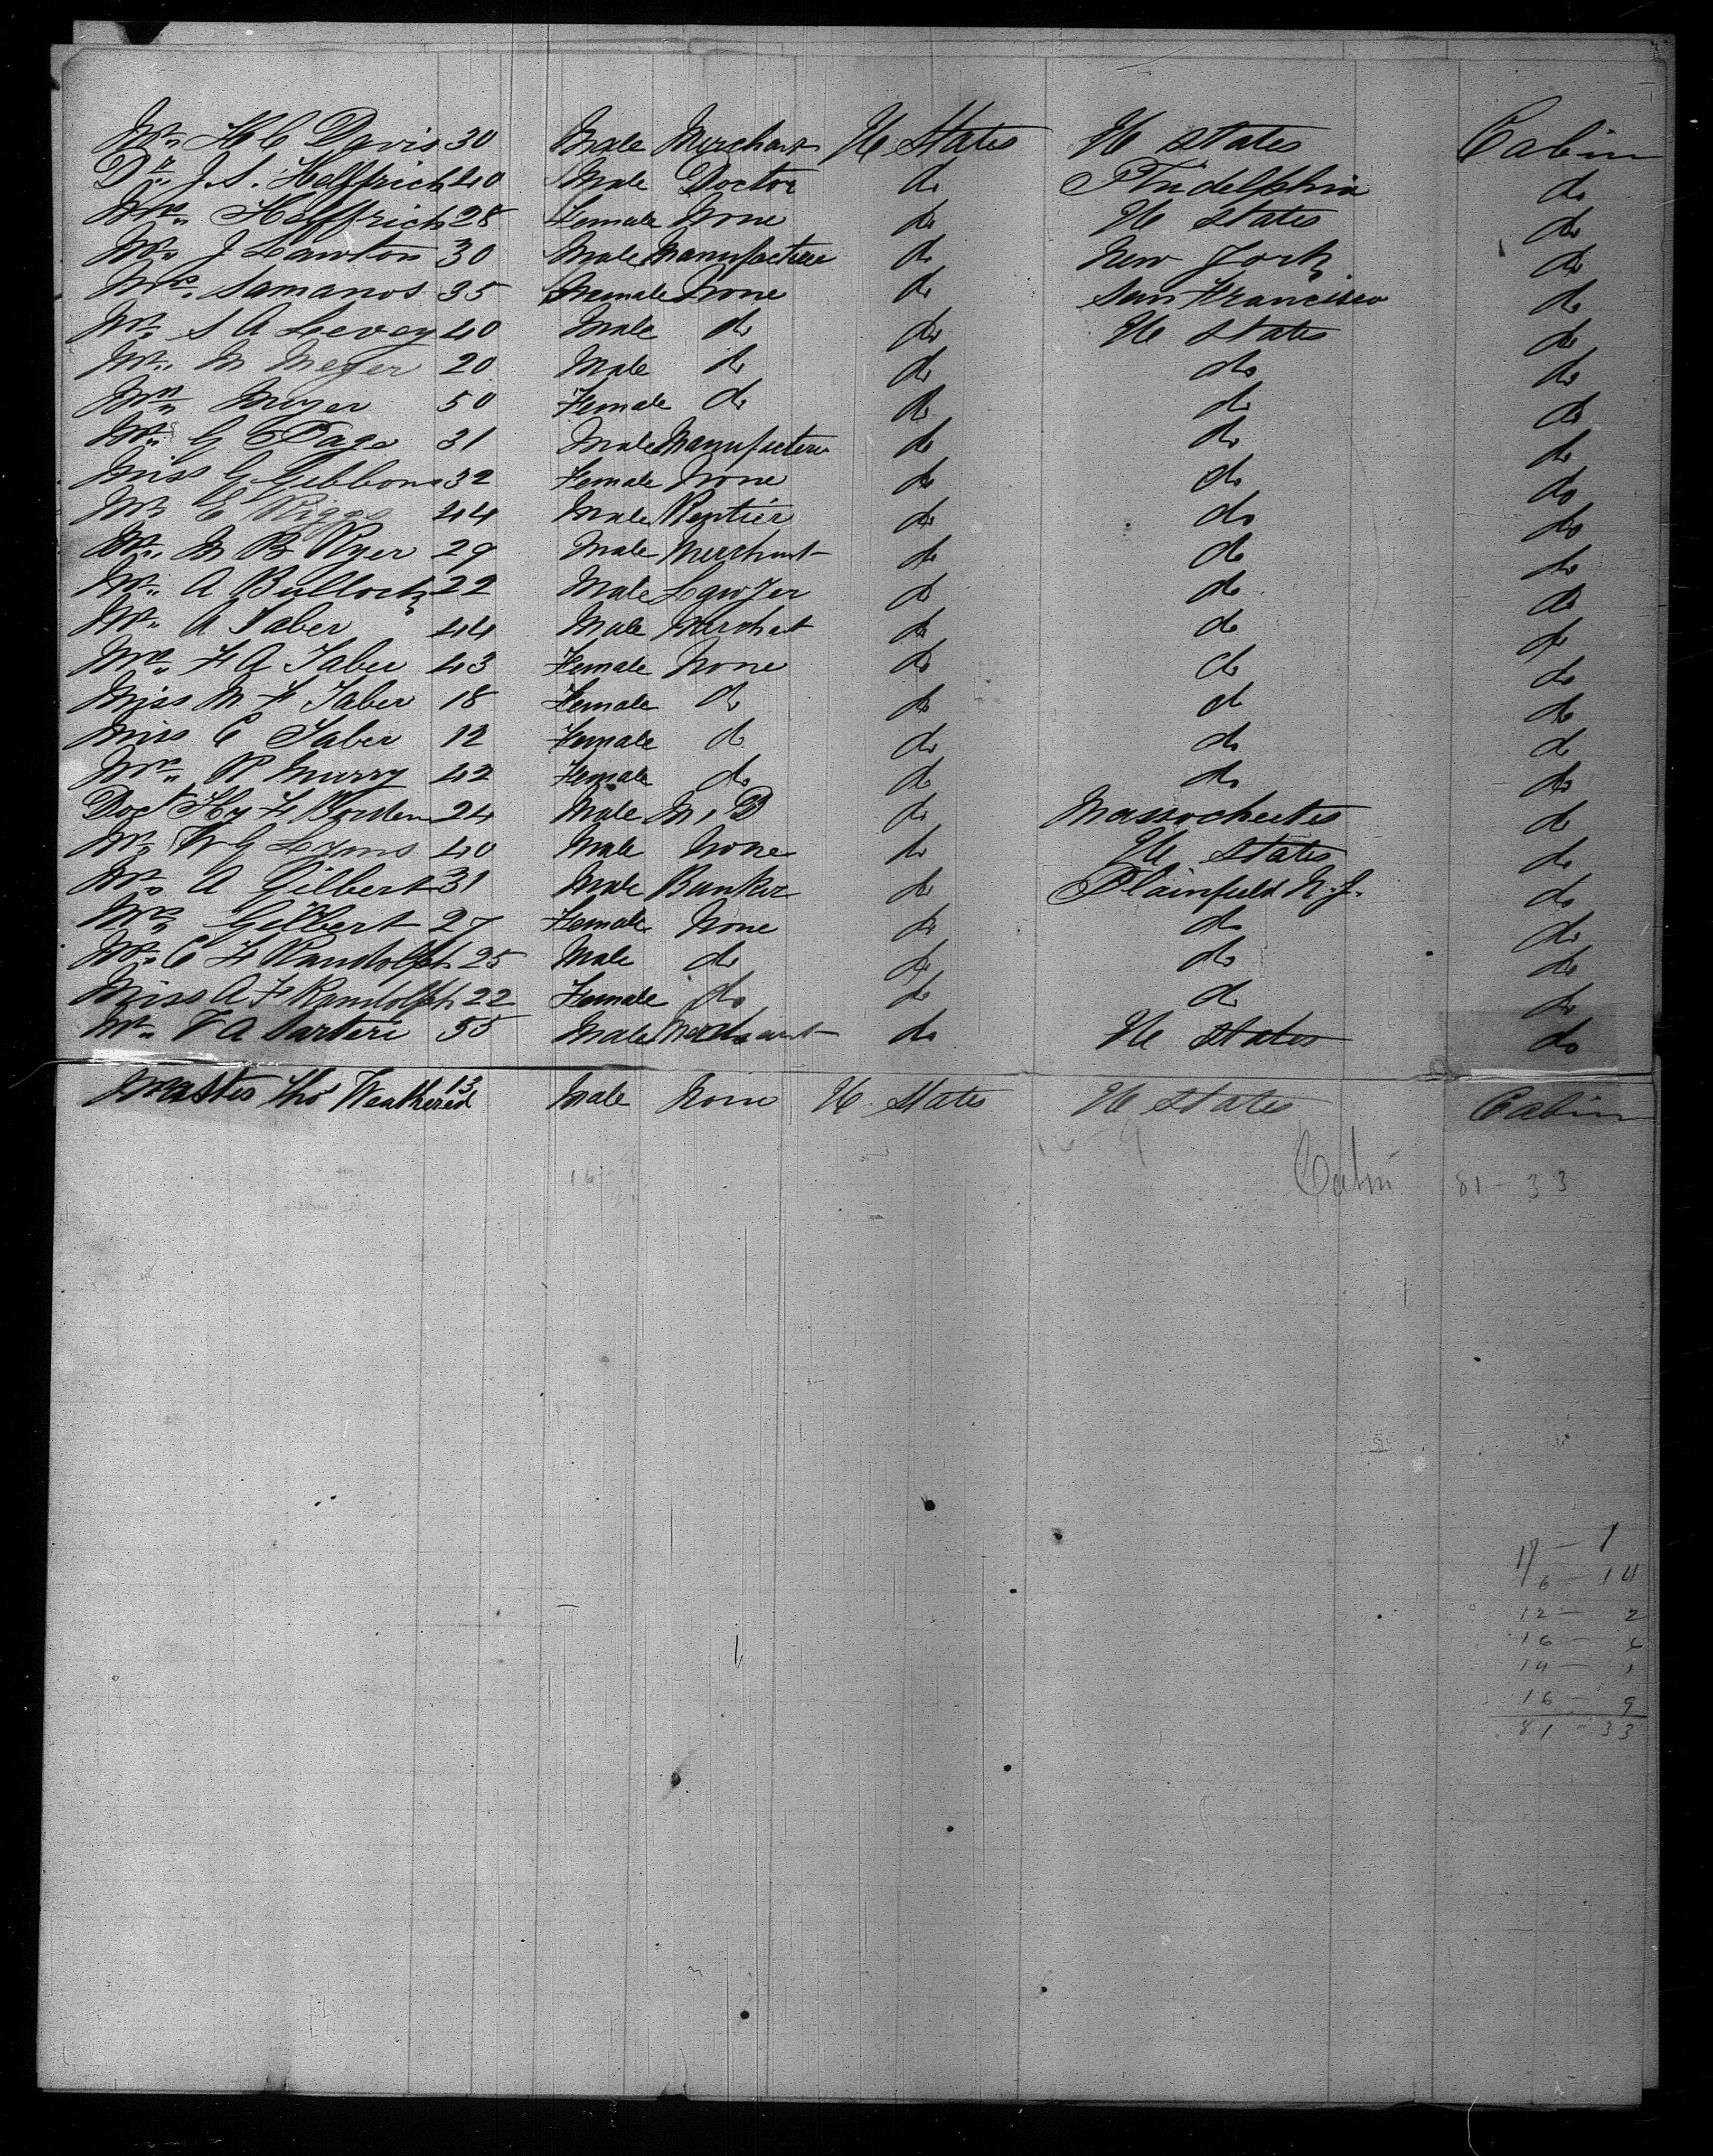 Mr. H C Davis 30 Male Merchant U States U States Cabin
Dr. J. S. Helffrich 40 Male Doctor do Phidelphia do
Mrs. Helffrich 28 Female None do U States do
Mr. J Lawton 30 Male Manufacture do New York do
Mrs. Samanos 35 Female None do San Francisco do
Mr. S A Levey 40 Male do do U States do
Mr. M Meyer 20 Male do do do do
Mrs. Meyer 50 Female do do do do
Mr. G Page 31 Male Manufacture do do do
Miss G Gibbons 32 Female None do do do
Mr. E Riggs 44 Male Rentier do do do
Mr. M B Ryer 29 Male Merchant do do do
Mr. A Bullock 22 Male Lawyer do do do
Mr. A Taber 44 Male Merchat do do do
Mrs. F A Taber 43 Female None do do do
Miss M F Taber 18 Female do do do do
Miss C Taber 12 Female do do do do
Mrs. R Murry 42 Female do do do do
Doct Hy F Borden 24 Male M. D do Massochuetes do
Mr. W G Lyons 40 Male None do U States do
Mr. A Gilbert 31 Male Banker do Plainfield N. J. do
Mrs. Gilbert 27 Female None do do do
Mr. C F Randolph 25 Male do do do do
Miss A F Randolph 22 Female do do do do
Mr. V A Sarteri 55 Male Merchant do U States do
Master Tho Weathered 13 Male None U States U States Cabin
16 - 9
Cabin 81 - 33
17 - 1
6 - 14
12 - 2
16 - 6
14 - 1
16 - 9
81 - 33